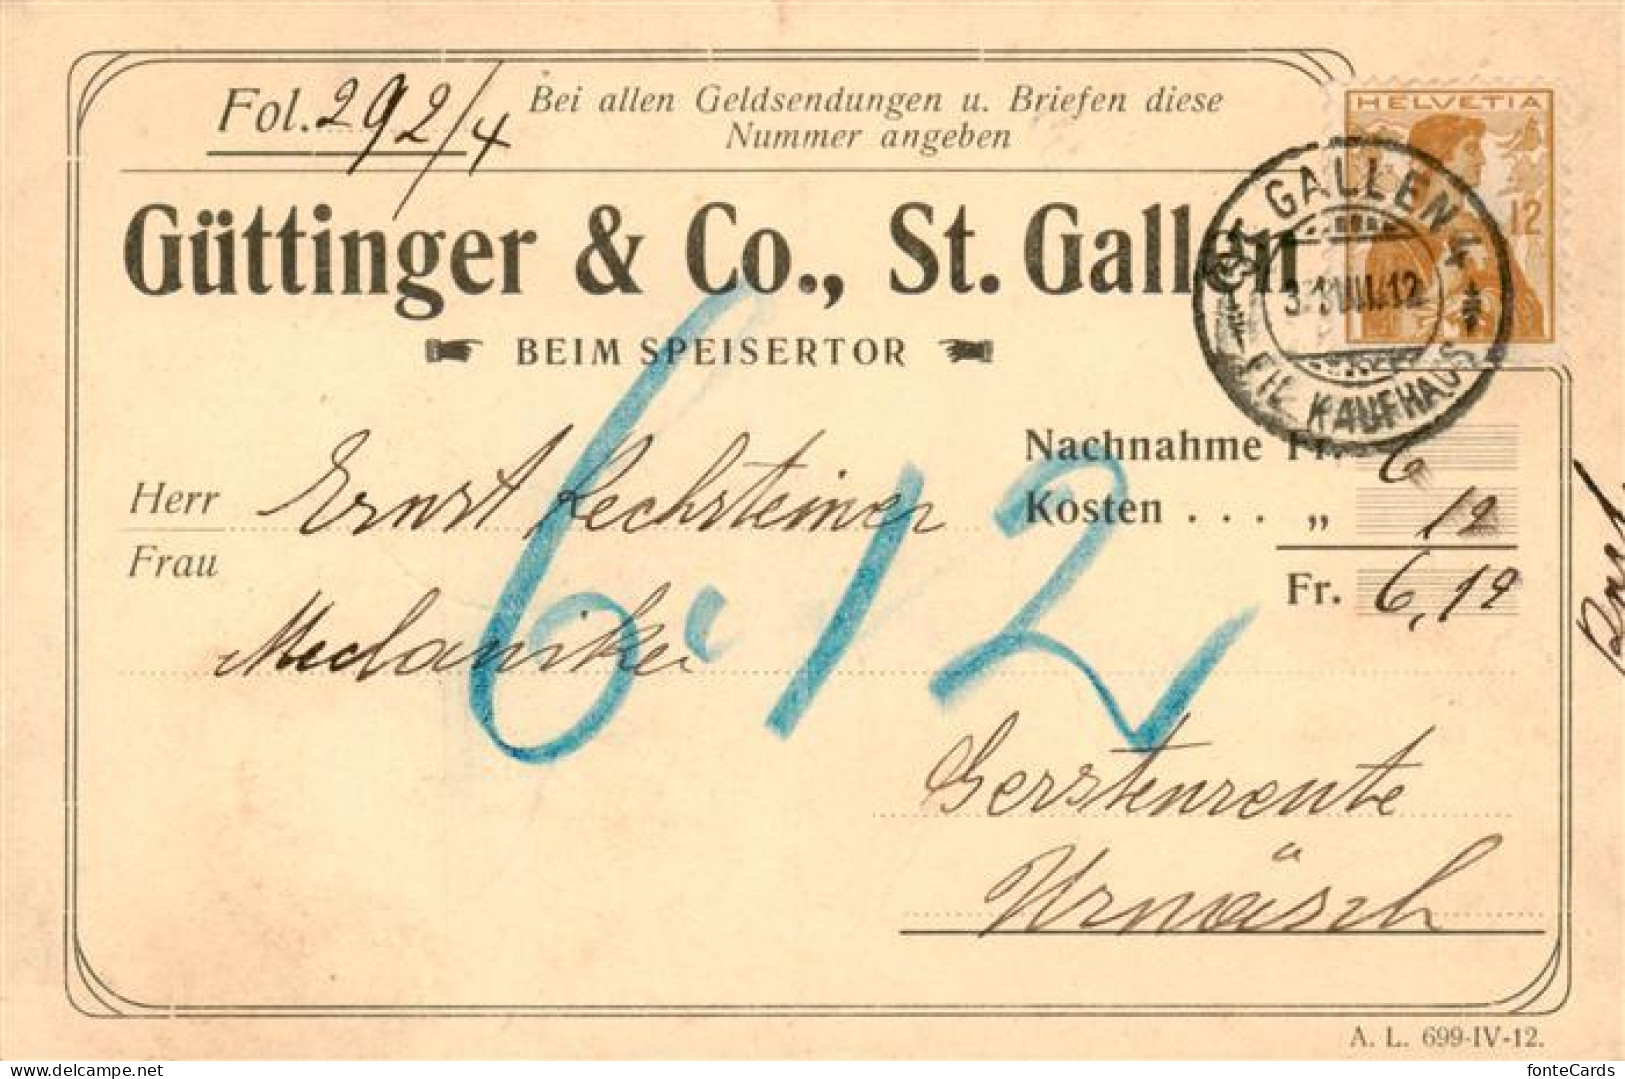 Fol. 292/4
Bei allen Geldsendungen u. Briefen diese
Nummer angeben
HELVETIA
12
ST. GALLEN 4
FIL. KAUFHAUS
Güttinger & Co., St. Gallen
BEIM SPEISERTOR
Nachnahme Fr. 6
Kosten . . . „ 12
Fr. 6,12
Herr
Frau
Ernst Rechsteiner
Mechaniker
6.12
Gerstenreute
Urnäsch
A. L. 699-IV-12.
delcampe.net
fonteCards